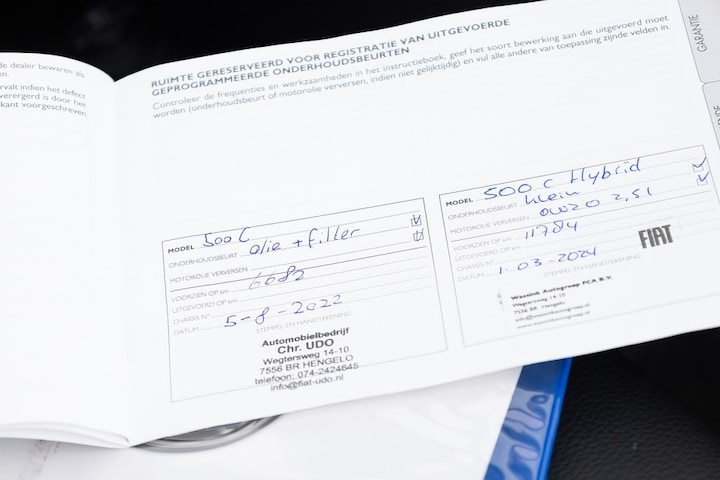 de dealer bewaren als
en.
rvalt indien het defect
verergerd is door het
kant voorgeschreven
RUIMTE GERESERVEERD VOOR REGISTRATIE VAN UITGEVOERDE
GEPROGRAMMEERDE ONDERHOUDSBEURTEN
Controleer de frequenties en werkzaamheden in het instructieboek, geef het soort bewerking aan die uitgevoerd moet
worden (onderhoudsbeurt of motorolie verversen, indien niet gelijktijdig) en vul alle andere van toepassing zijnde velden in.
GARANTIE
MODEL 500C
ONDERHOUDSBEURT olie + filter
MOTOROLIE VERVERSEN
VOORZIEN OP km 6682
UITGEVOERD OP km
CHASSIS N°
DATUM 5-8-2022
STEMPEL EN HANDTEKENING
Automobielbedrijf
Chr. UDO
Wegtersweg 14-10
7556 BR HENGELO
telefoon: 074-2424645
info@fiat-udo.nl
MODEL 500 C Hybrid
ONDERHOUDSBEURT klein
MOTOROLIE VERVERSEN 0W20 2,5l
VOORZIEN OP km 11784
UITGEVOERD OP km
CHASSIS N°
DATUM 1-03-2024
STEMPEL EN HANDTEKENING
FIAT
Wassink Autogroep FCA B.V.
Wegtersweg 14-10
7556 BR Hengelo
info@wassinkautogroep.nl
www.wassinkautogroep.nl